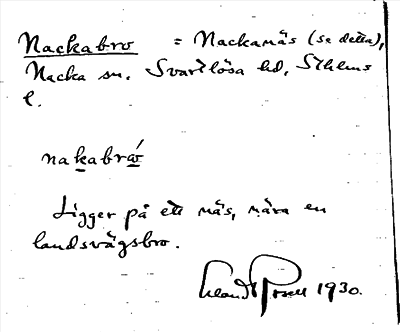 Nackabro = Nackanäs (se detta),
Nacka sn. Svartlösa hd, Sthlms
l.
nakabró
Ligger på ett näs, nära en
landsvägsbro.
1930.